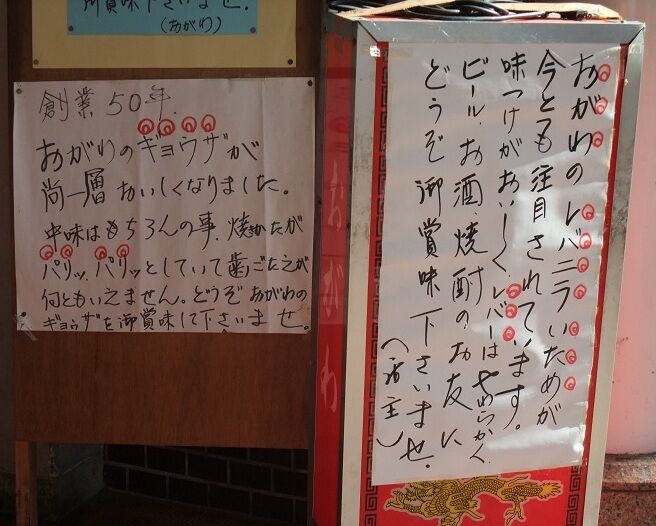 御賞味下さいませ。
(おがわ)
創業50年.
おがわのギョウザが
尚一層おいしくなりました。
中味はもちろんの事、焼かたが
パリッ、パリッとしていて歯ごたえが
何ともいえません。どうぞおがわの
ギョウザを御賞味して下さいませ。
おがわのレバニラいためが
今とても注目されています。
味つけがおいしく、レバーはやわらかく
ビール、お酒焼酎のお友に
どうぞ御賞味下さいませ。
(店主)
おがわ